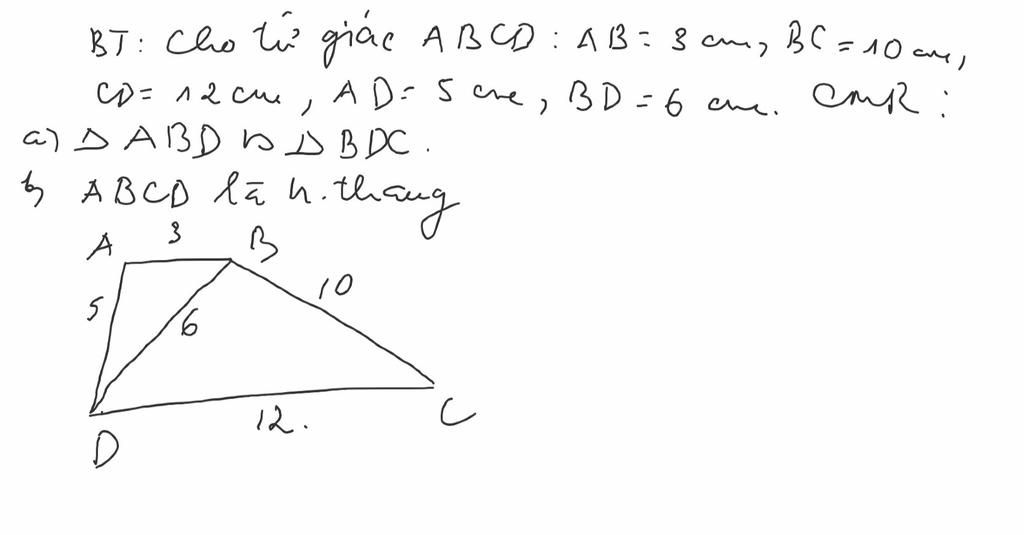 BT: Cho tứ giác ABCD: AB = 3 cm, BC = 10 cm,
CD = 12 cm, AD = 5 cm, BD = 6 cm. CMR:
a) Δ ABD ∽ Δ BDC.
b) ABCD là h.thang
A 3 B
5 6 10
D 12. C